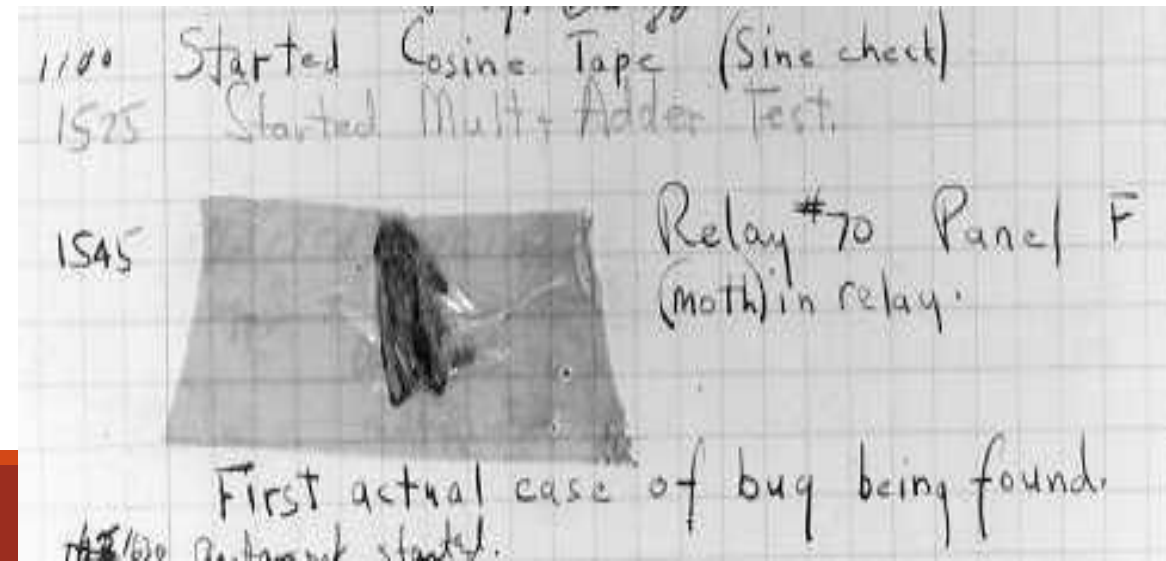 1100 Started Cosine Tape (Sine check)
1525 Started Mult + Adder Test.
1545 Relay #70 Panel F
(moth) in relay.
First actual case of bug being found.
started.